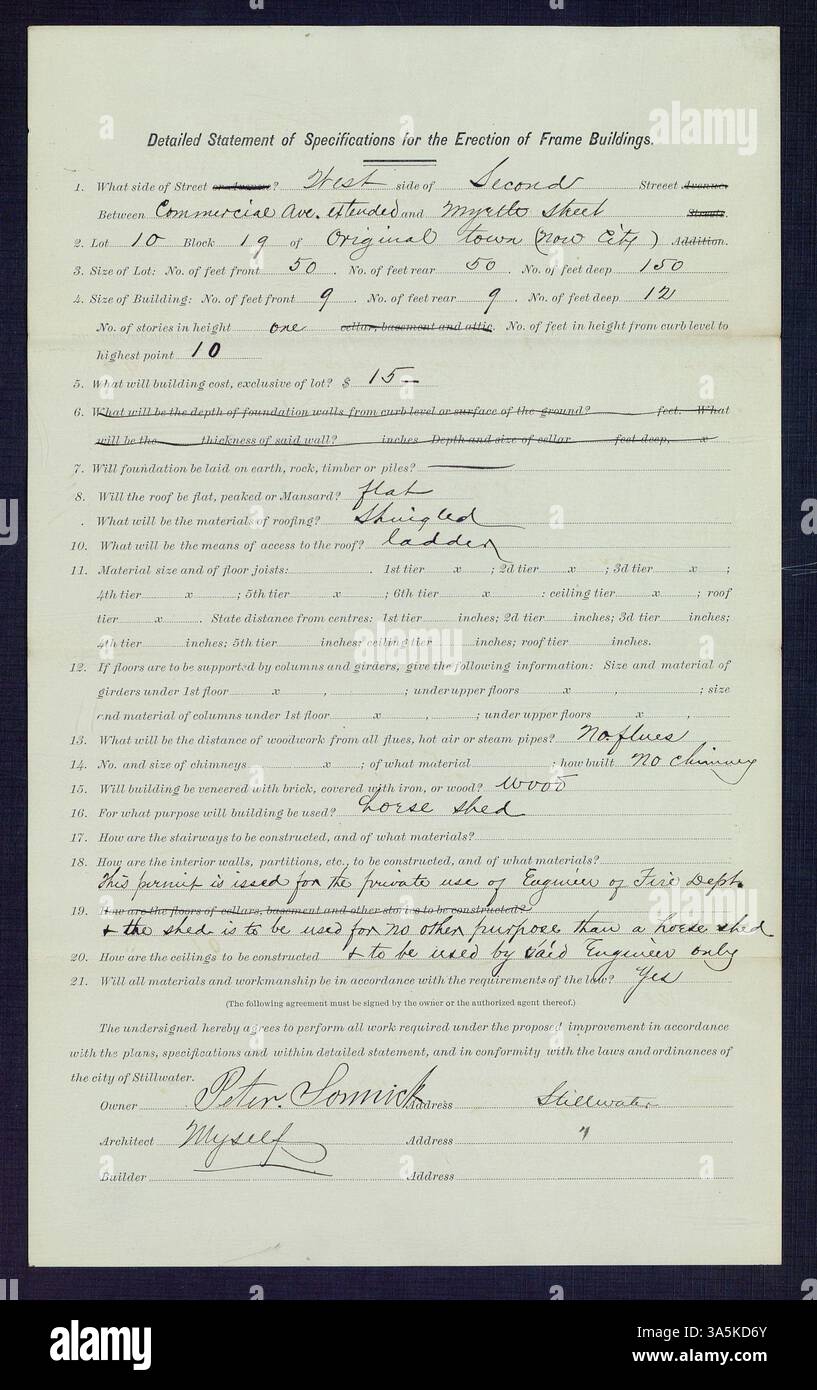 Detailed Statement of Specifications for the Erection of Frame Buildings.
1. What side of Street or Avenue? West side of Second Streeet Avenue.
Between Commercial Ave. extended and Myrtle street Streets.
2. Lot 10 Block 19 of Original town (now City) Addition.
3. Size of Lot: No. of feet front 50. No. of feet rear 50. No. of feet deep 150
4. Size of Building: No. of feet front 9. No. of feet rear 9. No. of feet deep 12
No. of stories in height one cellar, basement and attic. No. of feet in height from curb level to
highest point 10
5. What will building cost, exclusive of lot? $ 15—
6. What will be the depth of foundation walls from curb level or surface of the ground? feet. What
will be the thickness of said wall? inches Depth and size of cellar feet deep, x
7. Will foundation be laid on earth, rock, timber or piles? —
8. Will the roof be flat, peaked or Mansard? flat
. What will be the materials of roofing? Shingled
10. What will be the means of access to the roof? ladder
11. Material size and of floor joists: . 1st tier x ; 2d tier x ; 3d tier x ;
4th tier x ; 5th tier x ; 6th tier x : ceiling tier x ; roof
tier x . State distance from centres: 1st tier inches; 2d tier inches; 3d tier inches;
4th tier inches; 5th tier inches; ceiling tier inches; roof tier inches.
12. If floors are to be supported by columns and girders, give the following information: Size and material of
girders under 1st floor x , ; under upper floors x , ; size
and material of columns under 1st floor x , ; under upper floors x ,
13. What will be the distance of woodwork from all flues, hot air or steam pipes? No. flues
14. No. and size of chimneys x ; of what material ; how built No chimney
15. Will building be veneered with brick, covered with iron, or wood? wood
16. For what purpose will building be used? horse shed
17. How are the stairways to be constructed, and of what materials?
18. How are the interior walls, partitions, etc., to be constructed, and of what materials?
This permit is issed for the private use of Engineer of Fire Dept.
19. How are the floors of cellars, basement and other stories to be constructed?
+ the shed is to be used for no other purpose than a horse shed
20. How are the ceilings to be constructed + to be used by said Engineer only
21. Will all materials and workmanship be in accordance with the requirements of the law? Yes
(The following agreement must be signed by the owner or the authorized agent thereof.)
The undersigned hereby agrees to perform all work required under the proposed improvement in accordance
with the plans, specifications and within detailed statement, and in conformity with the laws and ordinances of
the city of Stillwater.
Owner Peter. Address Stillwater
Architect Myself Address "
Builder Address
alamy
Image ID: 3A5KD6Y
www.alamy.com